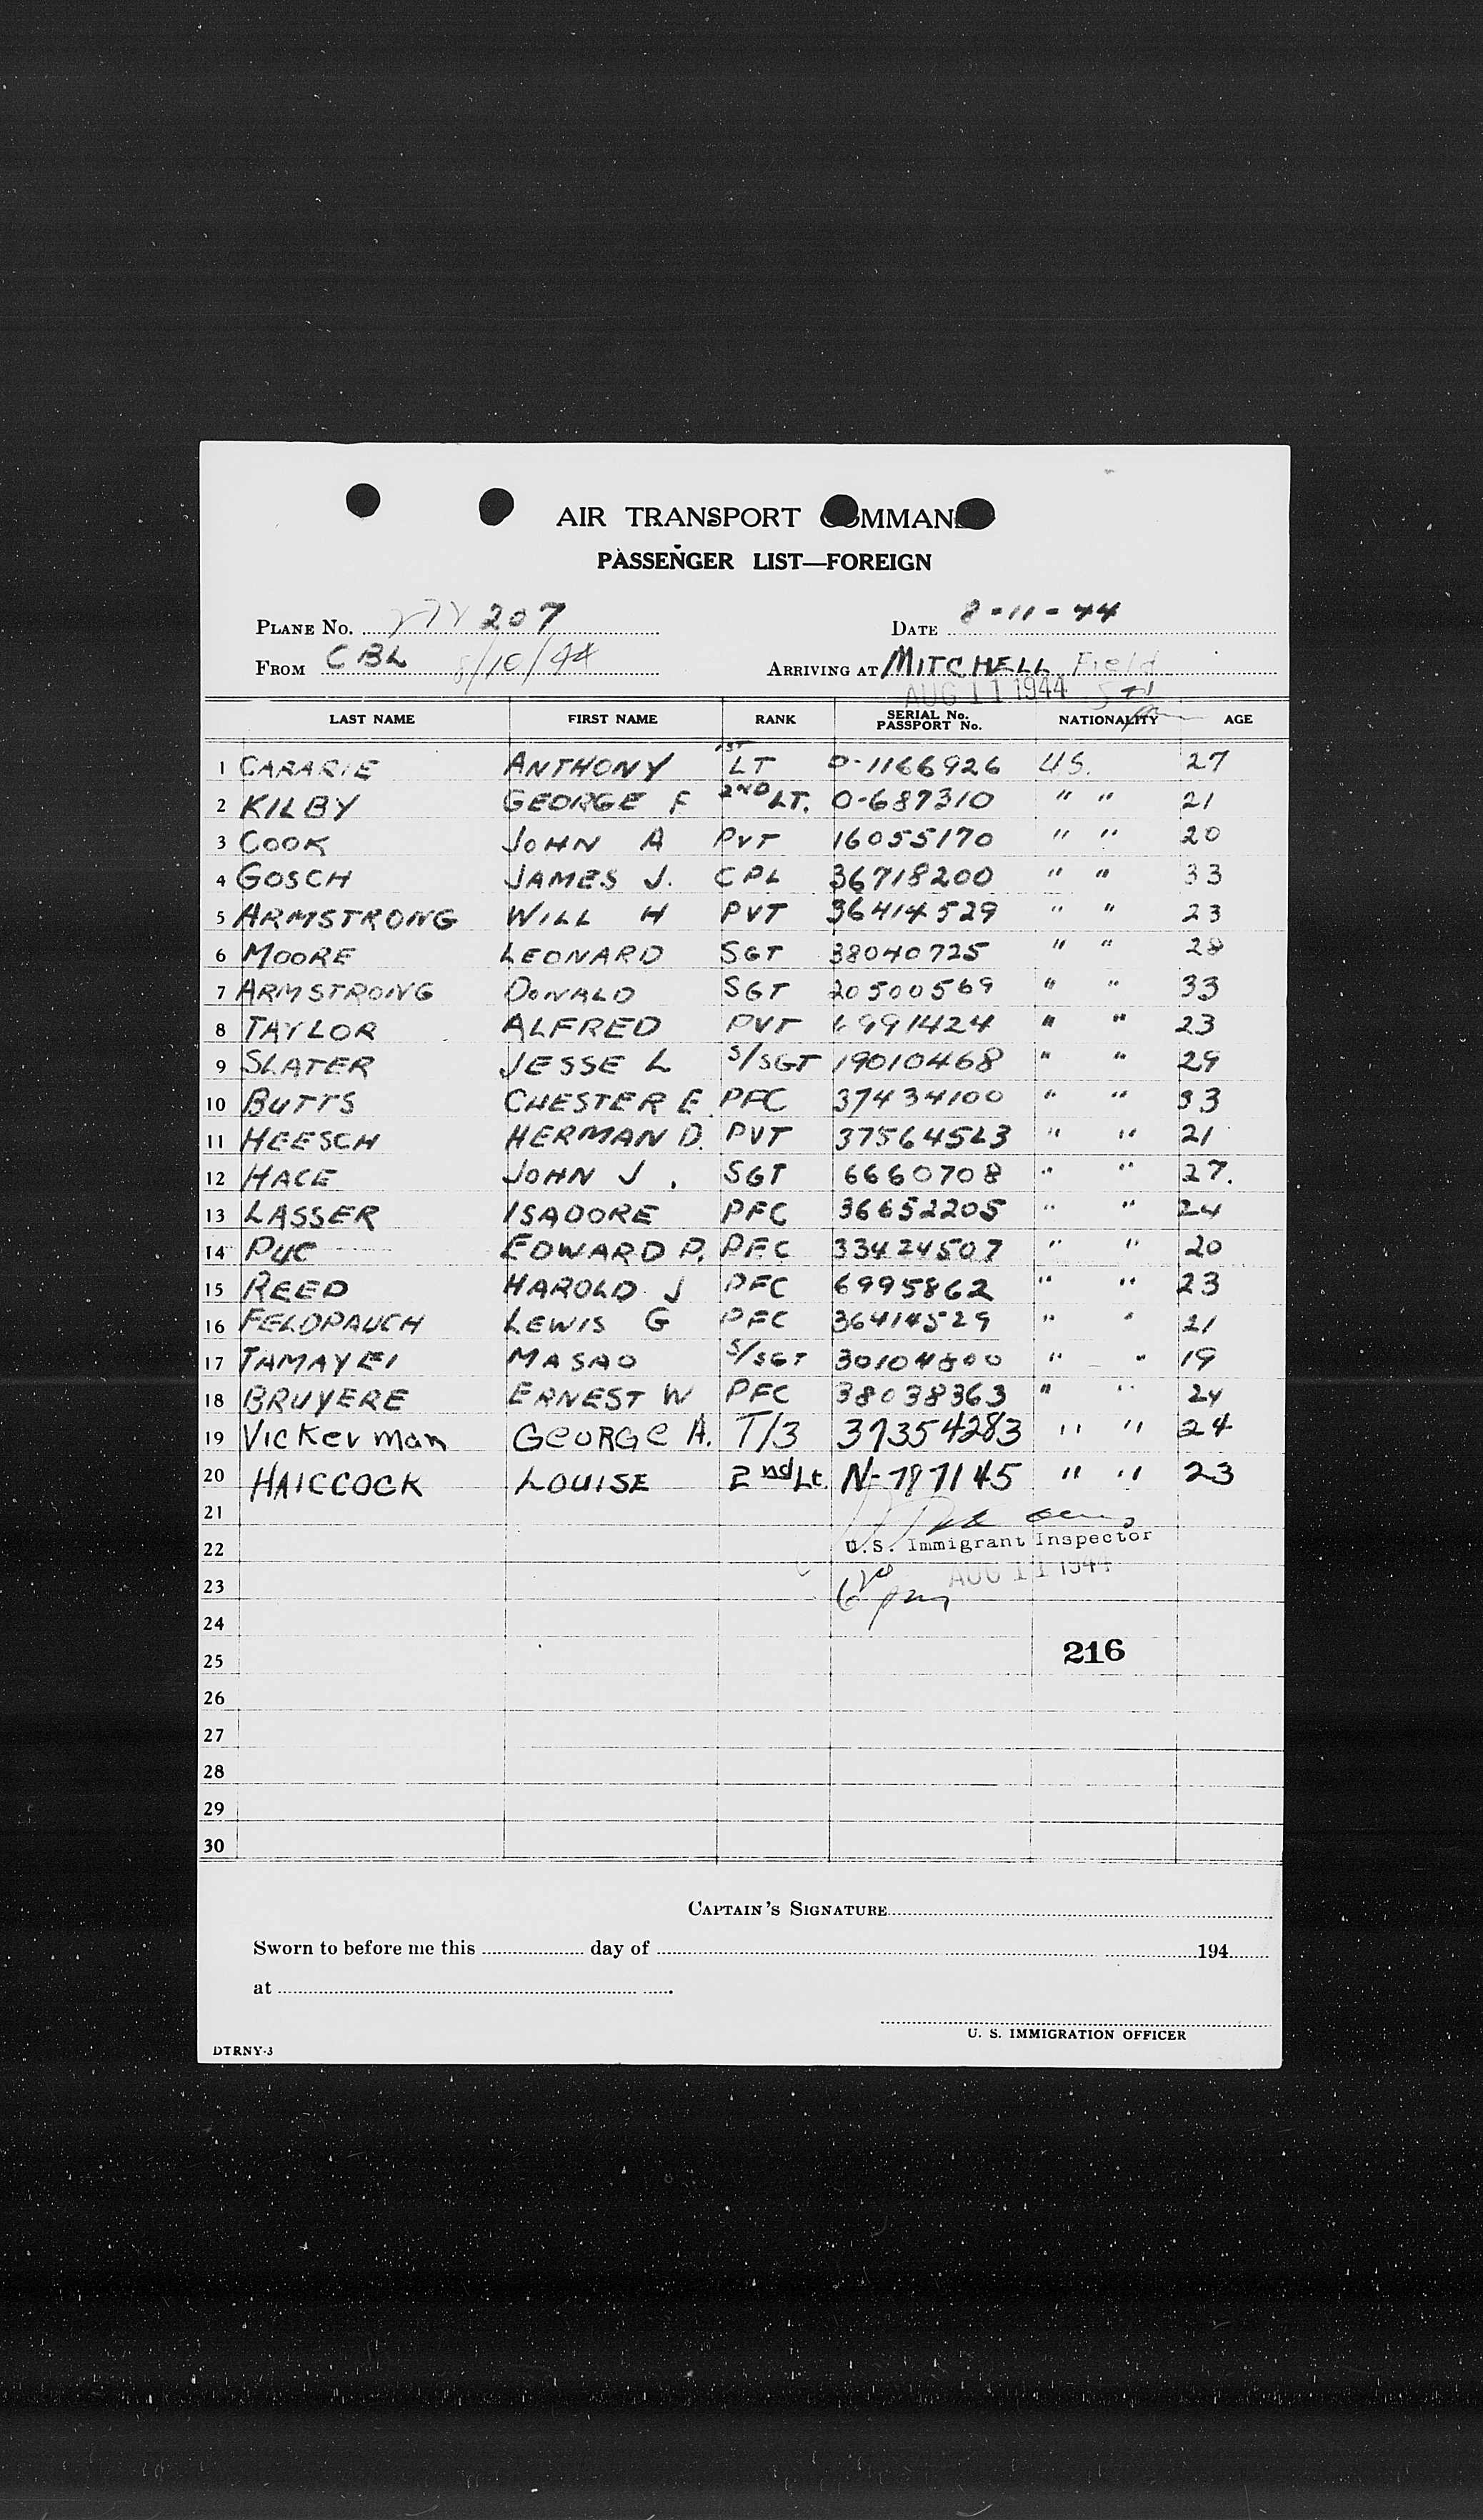 AIR TRANSPORT COMMAND
PASSENGER LIST—FOREIGN
PLANE No. 207 DATE 8-11-44
FROM CBL 8/10/44 ARRIVING AT MITCHELL Field
AUG 11 1944
LAST NAME FIRST NAME RANK SERIAL No. PASSPORT No. NATIONALITY AGE
1 CARARIE ANTHONY 1ST LT O-1166926 U.S. 27
2 KILBY GEORGE F 2ND LT. O-687310 " " 21
3 COOK JOHN A PVT 16055170 " " 20
4 GOSCH JAMES J. CPL 36718200 " " 33
5 ARMSTRONG WILL H PVT 36414529 " " 23
6 MOORE LEONARD SGT 38040725 " " 28
7 ARMSTRONG DONALD SGT 20500569 " " 33
8 TAYLOR ALFRED PVT 6991424 " " 23
9 SLATER JESSE L S/SGT 19010468 " " 29
10 BUTTS CHESTER E. PFC 37434100 " " 33
11 HEESCH HERMAN D. PVT 37564523 " " 21
12 HACE JOHN J. SGT 6660708 " " 27.
13 LASSER ISADORE PFC 36652205 " " 24
14 PUC EDWARD P. PFC 33424507 " " 20
15 REED HAROLD J PFC 6995862 " " 23
16 FELDPAUCH LEWIS G PFC 36414529 " " 21
17 TAMAYEI MASAO S/SGT 30104800 " " 19
18 BRUYERE ERNEST W PFC 38038363 " " 24
19 VicKerman GeORGe A. T/3 37354283 " " 24
20 HAICCOCK LOUISE 2nd Lt. N-787145 " " 23
21
U.S. Immigrant Inspector
22
AUG 11 1944
23
24
216
25
26
27
28
29
30
CAPTAIN'S SIGNATURE
Sworn to before me this day of 194
at
U. S. IMMIGRATION OFFICER
DTRNY-3